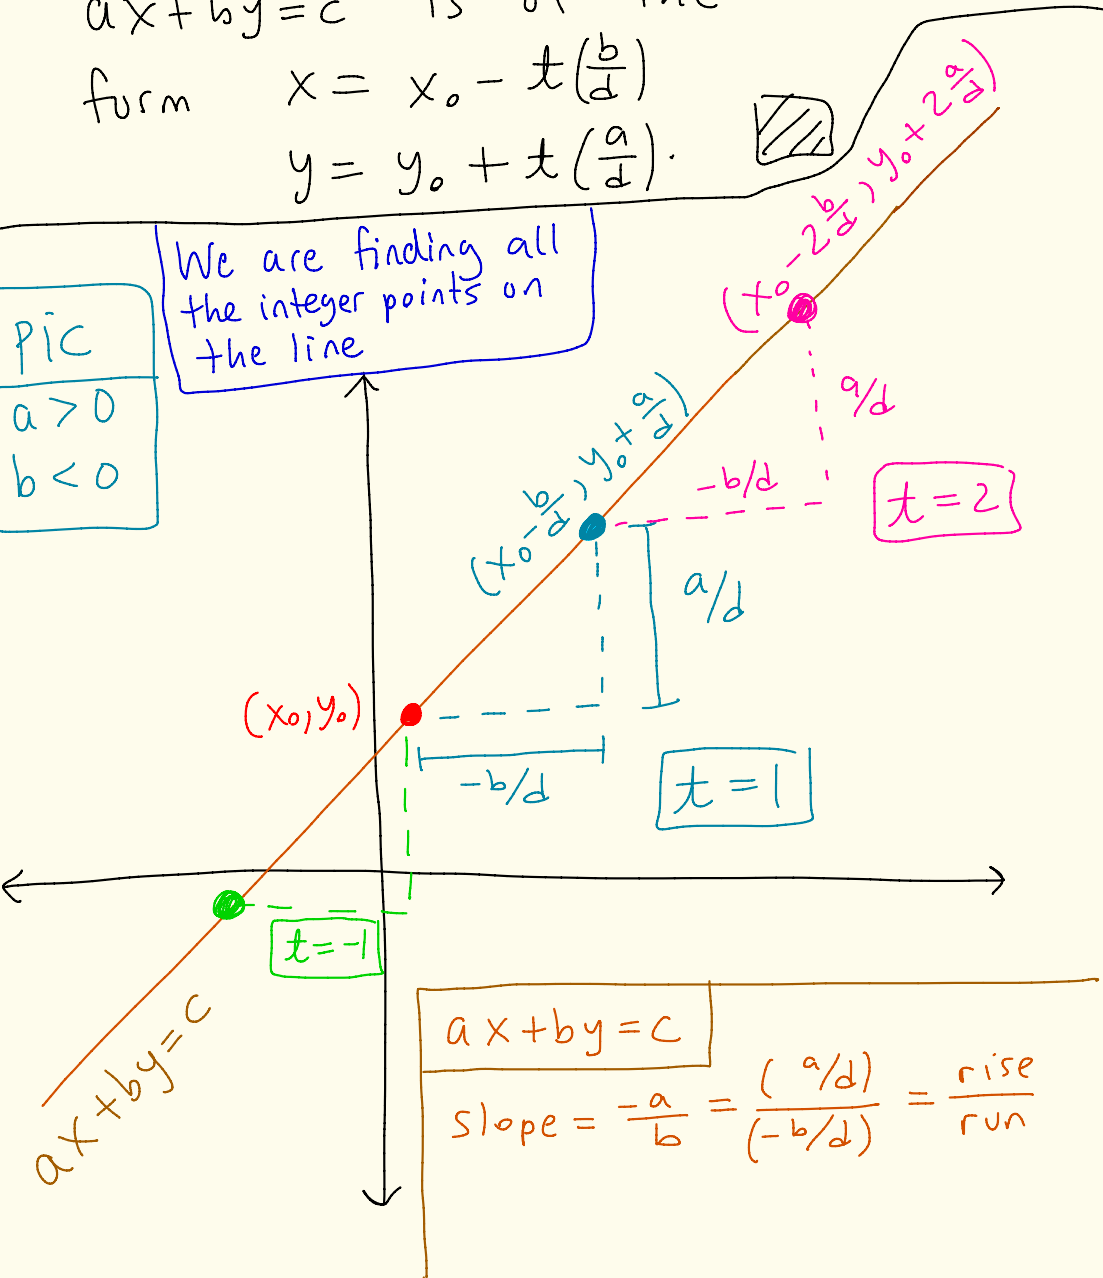 ax+by=c is of the
form x = x₀ - t(b/d)
y = y₀ + t(a/d).
We are finding all
the integer points on
the line
pic
a > 0
b < 0
(x₀-2b/d, y₀+2a/d)
a/d
-b/d
t=2
(x₀-b/d, y₀+a/d)
a/d
(x₀,y₀)
-b/d
t=1
t=-1
ax+by=c
ax+by=c
slope = -a/b = (a/d)/(-b/d) = rise/run